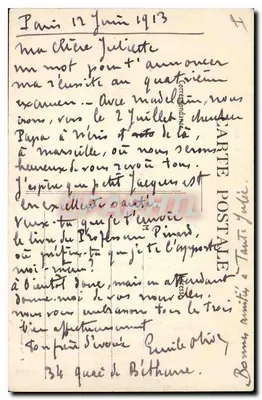 Paris 12 Juin 1913
Ma chère Juliette
un mot pour t'annoncer
ma réussite au quatrième
examen. Avec Madeleine, nous
irons, vers le 2 Juillet chercher
Papa à Néris et de là,
à Marseille, où nous serons
heureux de vous revoir tous.
J'espère que petit Jacques est
en excellente santé.
Veux-tu que je t'envoie
le livre du Professeur Pinard,
ou préfères-tu que je te l'apporte
moi-même?
à bientôt donc, mais en attendant
donne-moi de vos nouvelles.
nous vous embrassons tous les trois
bien affectueusement
Ton frère dévoué Emile
34 quai de Béthune.
Bonnes amitiés à Tante Julie.
CARTE POSTALE
Correspondance